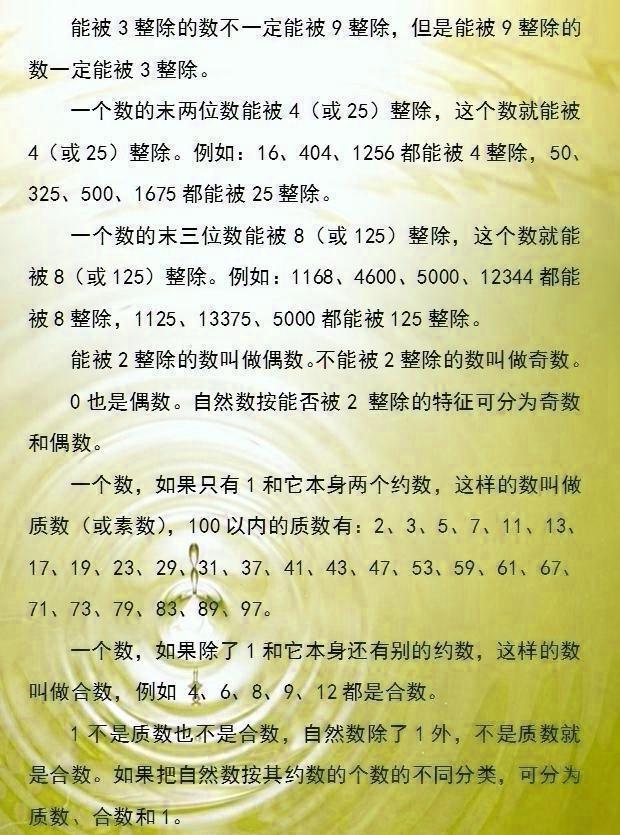 能被3整除的数不一定能被9整除，但是能被9整除的
数一定能被3整除。
一个数的末两位数能被4（或25）整除，这个数就能被
4（或25）整除。例如：16、404、1256都能被4整除，50、
325、500、1675都能被25整除。
一个数的末三位数能被8（或125）整除，这个数就能
被8（或125）整除。例如：1168、4600、5000、12344都能
被8整除，1125、13375、5000都能被125整除。
能被2整除的数叫做偶数。不能被2整除的数叫做奇数。
0也是偶数。自然数按能否被2 整除的特征可分为奇数
和偶数。
一个数，如果只有1和它本身两个约数，这样的数叫做
质数（或素数），100以内的质数有：2、3、5、7、11、13、
17、19、23、29、31、37、41、43、47、53、59、61、67、
71、73、79、83、89、97。
一个数，如果除了1和它本身还有别的约数，这样的数
叫做合数，例如 4、6、8、9、12都是合数。
1不是质数也不是合数，自然数除了1外，不是质数就
是合数。如果把自然数按其约数的个数的不同分类，可分为
质数、合数和1。